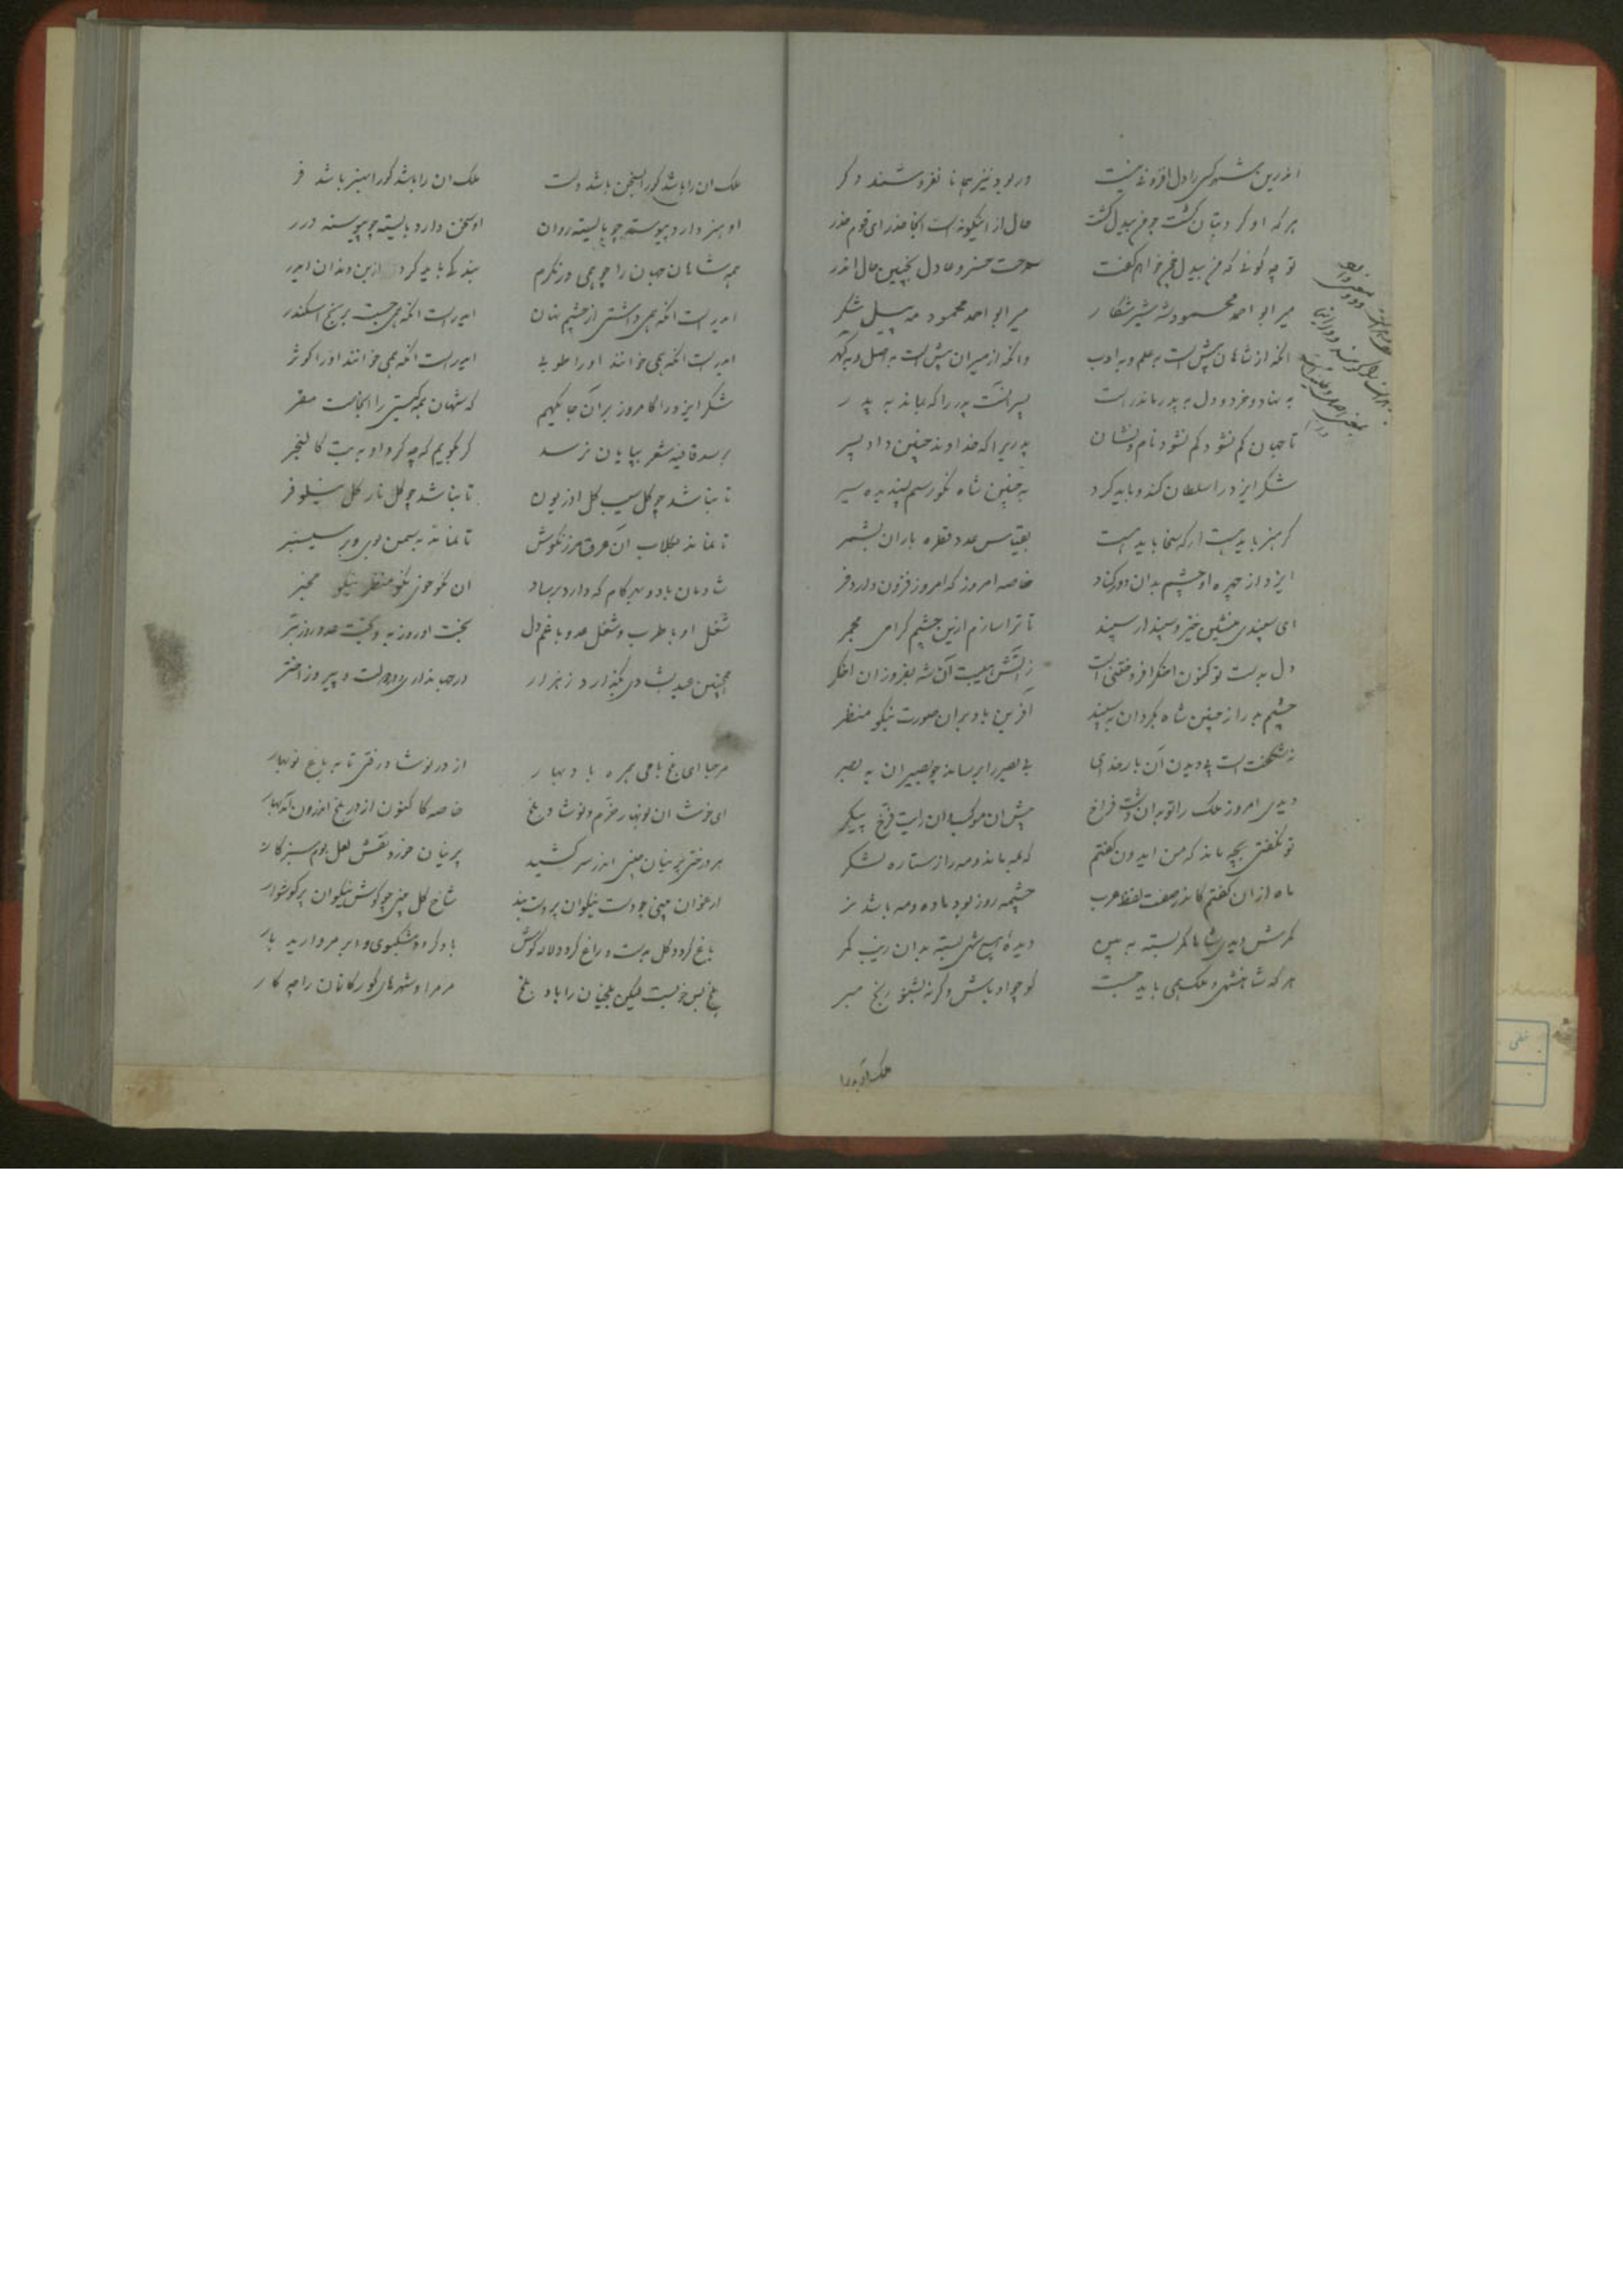 اندرین شهر کسی را دل افزونی نیست    ور بود نیز همانا نفروشند دگر
هر که او گرد بتان گشت چو من بیدل گشت    حال از اینگونه است اینجا حذر ای قوم حذر
تو چه گوئی که من بیدل چون خواهم گفت    مدحت خسرو عادل بچنین حال اندر
میر ابو احمد محمود شه شیر شکار    میر ابو احمد محمود مه پیل شکر
انکه از شاهان پیش است به علم و به ادب    وانکه از میران پیش است به اصل و به گهر
به نهاد و خرد و دل به پدر ماند راست    پسر آنست پدر را که بماند به پدر
تا جهان گم نشود گم نشود نام و نشان    پدریرا که خداوند چنین داد پسر
شکر ایزد را سلطان کند و باید کرد    به چنین شاه نکو رسم پسندیده سیر
گر هنر باید هست ار که سخا باید هست    بقیاس عدد قطره باران بشمر
ایزد از چهره او چشم بدان دور کناد    خاصه امروز که امروز فزون دارد فر
ای سپندی منشین خیز و سپند ار سپند    تا ترا سازم ازین چشم گرامی مجمر
دل به دست تو کنون اخگر افروختنی است    ز آتش هیبت آن شه بفروزان اخگر
چشم بد را ز چنین شاه بگردان به سپند    آفرین باد بر ان صورت نیکو منظر
نه شگفت است پی دیدن آن بار خدای    بی بصر را برساند چو بصیران به بصر
دیدی امروز ملک را تو بر ان دشت فراخ    پیش ان موکب و ان رایت فرخ پیکر
تو نگفتی بچه ماند که من ایدون گفتم    که چه ماند مه را ز ستاره لشکر
ماه از ان گفتم کاندر صفت لفظ عرب    چشمه روز بود ماده و مه باشد نر
کمرش دیدی شاها کمر بسته به بین    دیده ای هیچ شهی بسته بدان زیب کمر
هر که شاهنشهی و ملک همی باید جست    گو چو او باش و گرنه بنشین رنج مبر
ملک ان را باشد کورا سخن باشد دست    ملک ان را باشد کورا هنر باشد فر
او هنر دارد پیوسته چو بایسته روان    او سخن دارد بایسته چو پیوسته درر
همه شاهان جهان را چو همی در نگرم    بندگی باید کرد ازین دندان ایدر
ایدر است انکه همی داشتی از چشم نهان    ایدر است انکه همی جست برنج اسکندر
ایدر است انکه همی خوانند او را طوبی    ایدر است انکه همی خوانند او را کوثر
شکر ایزد را کامروز بر آن جایگهیم    که شهان همه گیتی را انجاست مقر
برسد قافیه شعر بپایان نرسد    گر بگویم که چه کرد او به بت کالنجر
تا نباشد چو گل سیب گل اذریون    تا نباشد چو گل نار گل نیلوفر
تا نماند بگلاب آن عرق مرزنگوش    تا نماند به سمن بوی و بر سیسنبر
شادمان باد و بهر کام که دارد برساد    ان نکو خوی نکو منظر نیکو مخبر
شغل او با طرب و شغل عدو با غم دل    بخت او روز به و بخت عدو روز بتر
همچنین عید بشادی بگذارد ز هزار    در جهانداری و دولت و پیروز اختر
مرحبا ای بلخ بامی همره باد بهار    از در نوشاد رفتی تا به باغ نوبهار
ای خوشا ان نوبهار خرم و نوشاد بلخ    خاصه کا کنون از در بلخ اندرون آمد بهار
هر درختی پرنیان چینی اندر سر کشید    پرنیان خرد نقش لعل بوم سبز کار
ارغوان بینی چو دست نیکوان پر دستبند    شاخ گل بینی چو گوش نیکوان پر گوشوار
باغ گردد گل پرست و راغ گردد لاله گوش    باد گردد مشکبوی و ابر مروارید بار
باغ بس خوبست لیکن بلخیان را باد بلخ    مر مرا و شهرهای گورکانان را چه کار